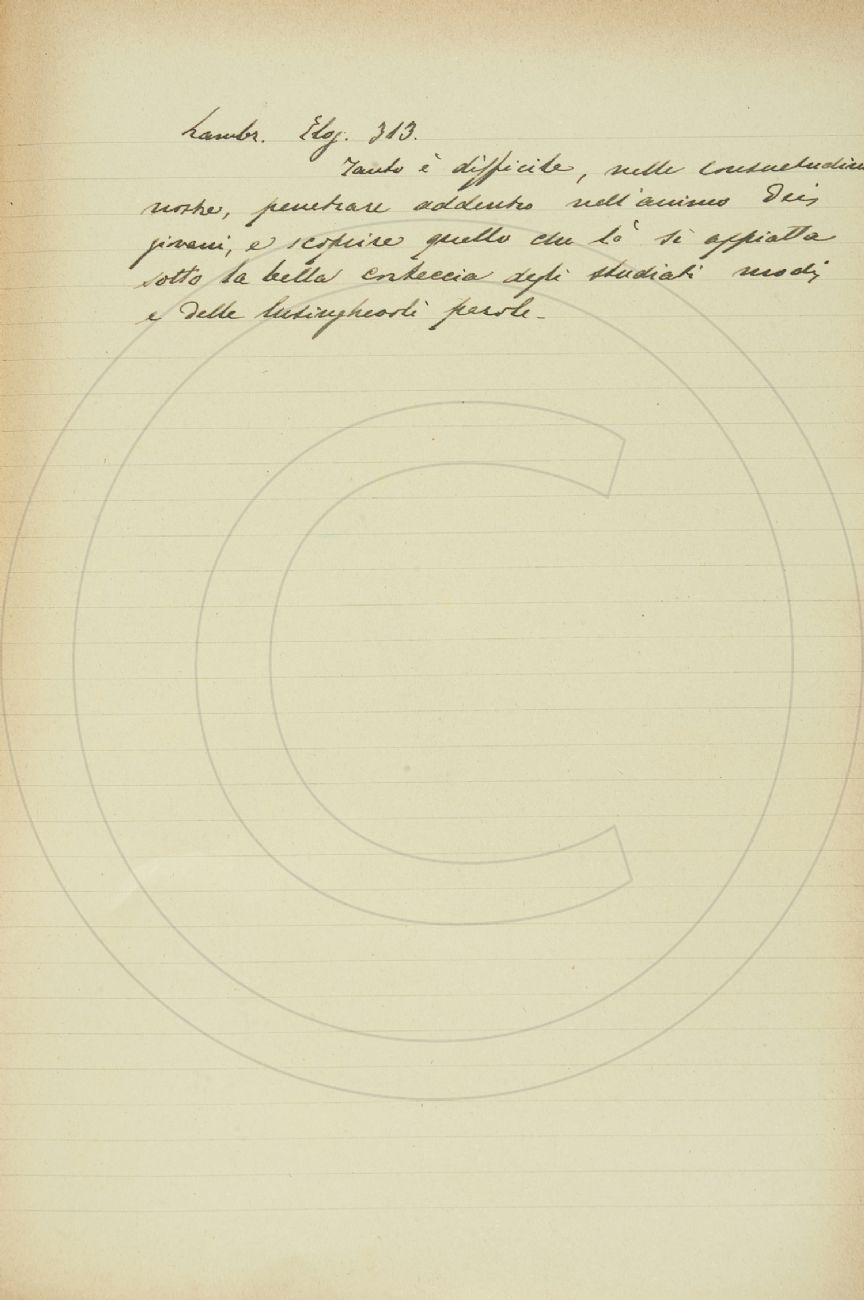 Lambr. Elog. 313.
Tanto è difficile, nelle consuetudini
nostre, penetrare addentro nell'animo dei
giovani, e scoprire quello che là si appiatta
sotto la bella corteccia degli studiati modi,
e delle lusinghevoli parole.